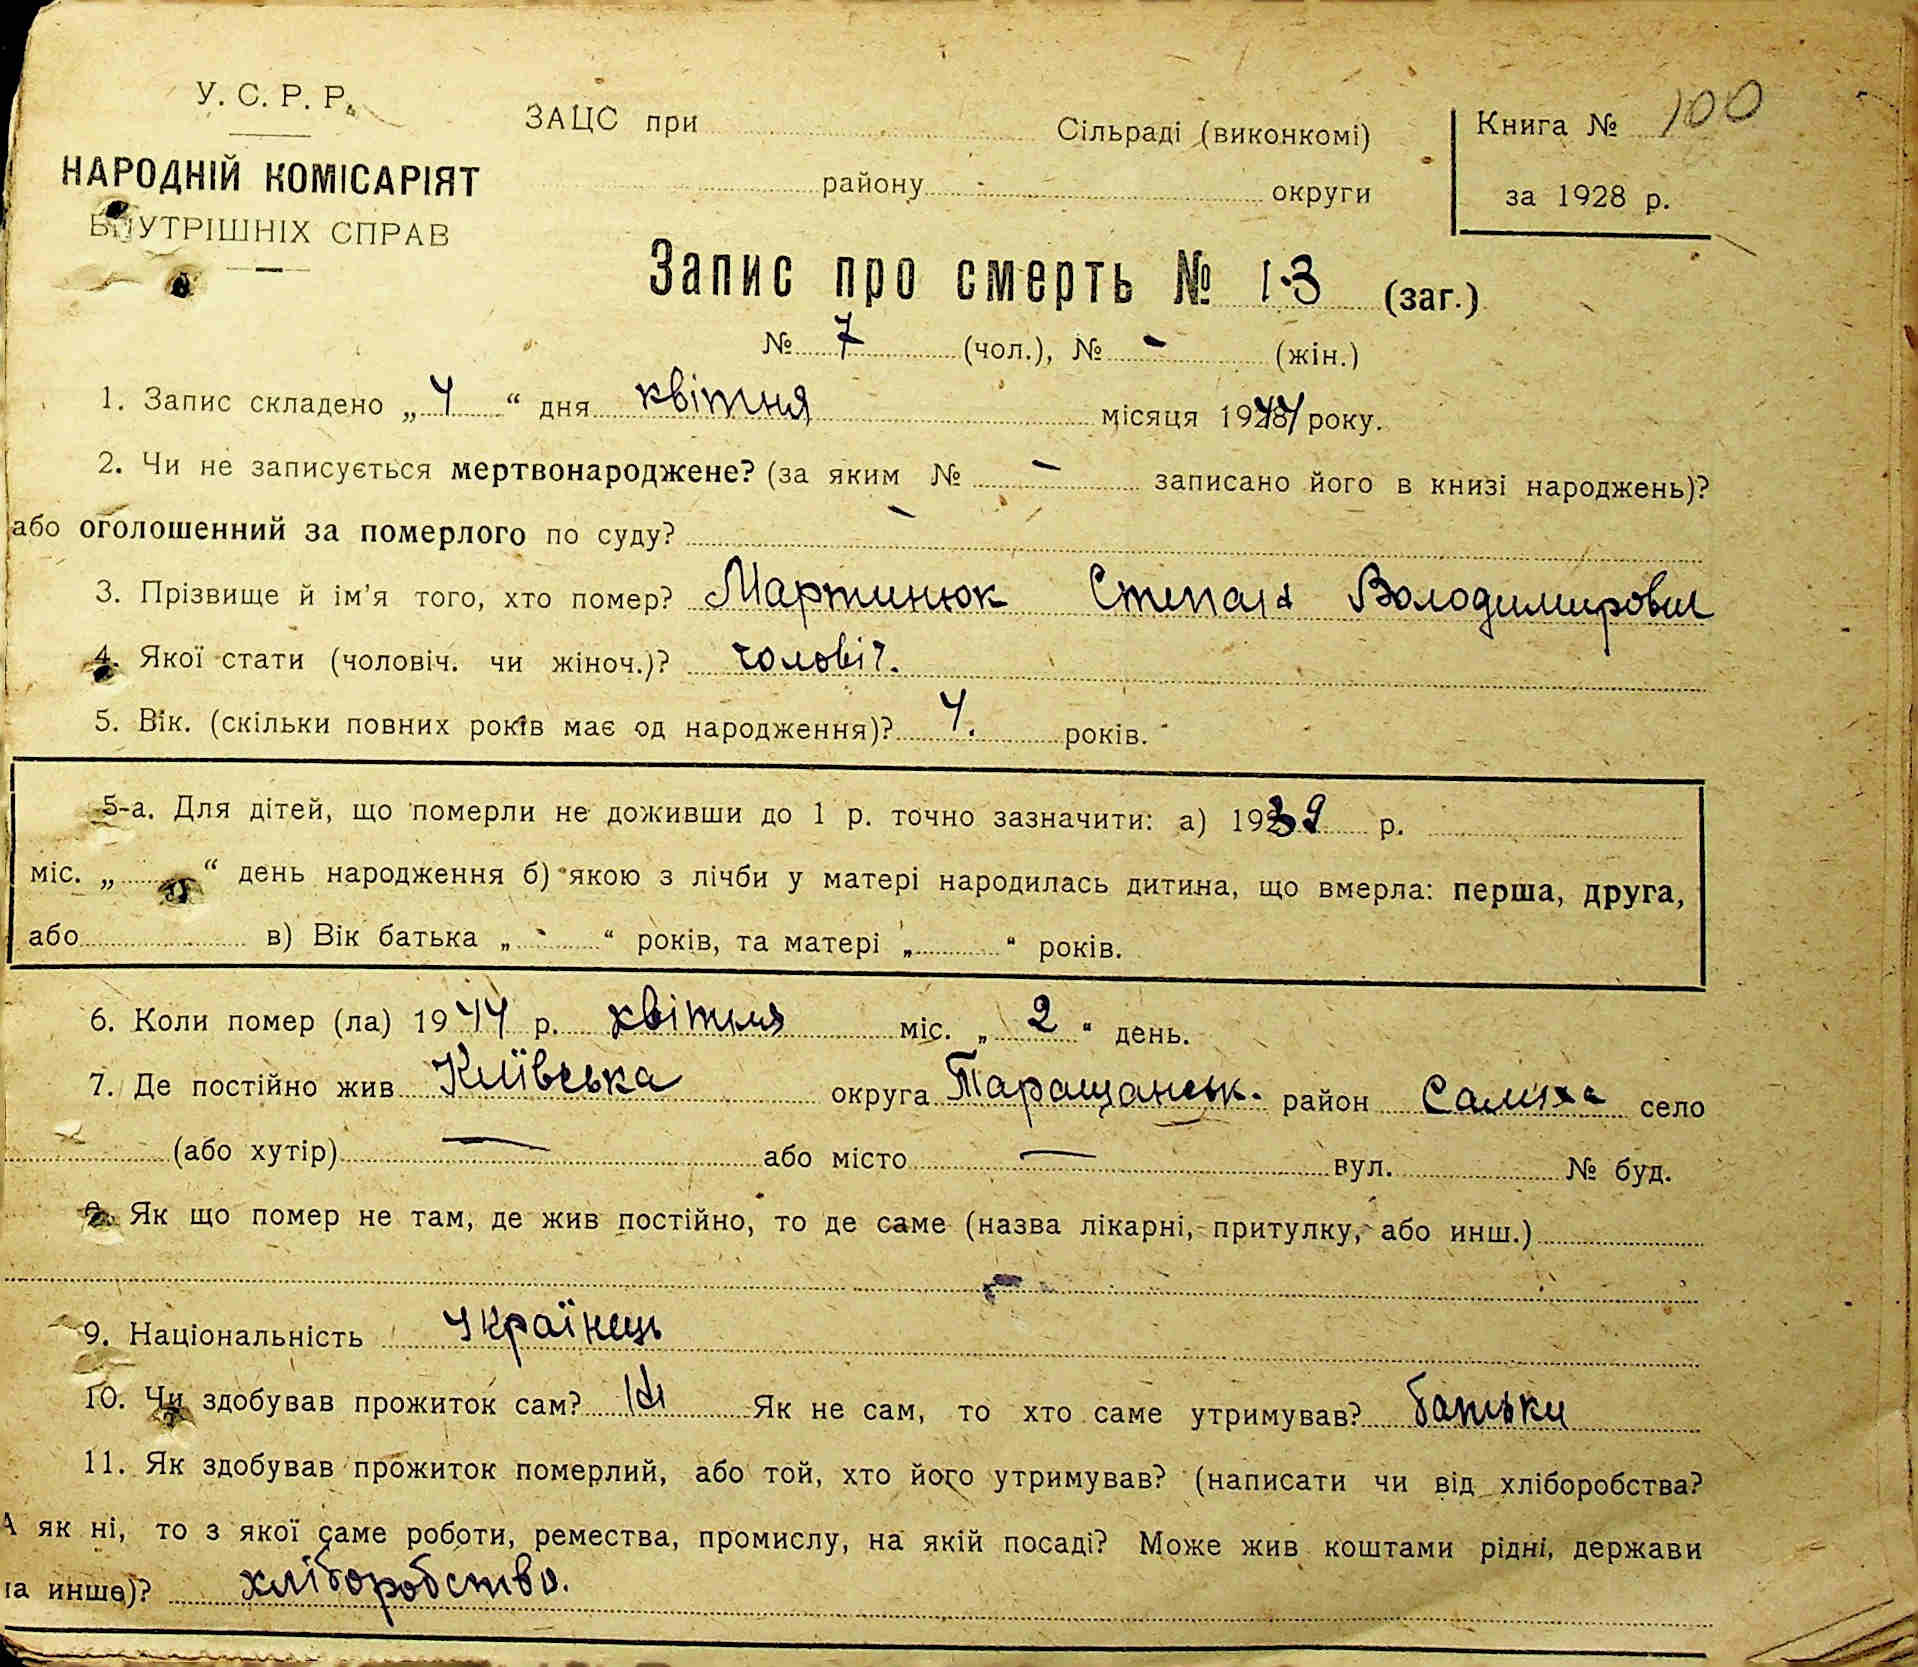 У. С. Р. Р.
НАРОДНІЙ КОМІСАРІЯТ
ВНУТРІШНІХ СПРАВ
ЗАЦС при Сільраді (виконкомі)
району округи
Книга № 100
за 1928 р.
Запис про смерть № 13 (заг.)
№ 7 (чол.), № - (жін.)
1. Запис складено „ 4 “ дня квітня місяця 1944 року.
2. Чи не записується мертвонароджене? (за яким № - записано його в книзі народжень)?
або оголошенний за померлого по суду? -
3. Прізвище й ім'я того, хто помер? Мартинюк Степан Володимирович
4. Якої стати (чоловіч. чи жіноч.)? чоловіч.
5. Вік. (скільки повних років має од народження)? 4. років.
5-а. Для дітей, що померли не доживши до 1 р. точно зазначити: а) 1939 р.
міс. „ “ день народження б) якою з лічби у матері народилась дитина, що вмерла: перша, друга,
або в) Вік батька „ “ років, та матері „ “ років.
6. Коли помер (ла) 1944 р. квітня міс. „ 2 “ день.
7. Де постійно жив Київська округа Таращанськ. район Салиха село
(або хутір) — або місто — вул. № буд.
8. Як що помер не там, де жив постійно, то де саме (назва лікарні, притулку, або инш.)
9. Національність Українець
10. Чи здобував прожиток сам? Ні Як не сам, то хто саме утримував? батьки
11. Як здобував прожиток померлий, або той, хто його утримував? (написати чи від хліборобства?
А як ні, то з якої саме роботи, ремества, промислу, на якій посаді? Може жив коштами рідні, держави
та инше)? хліборобство.